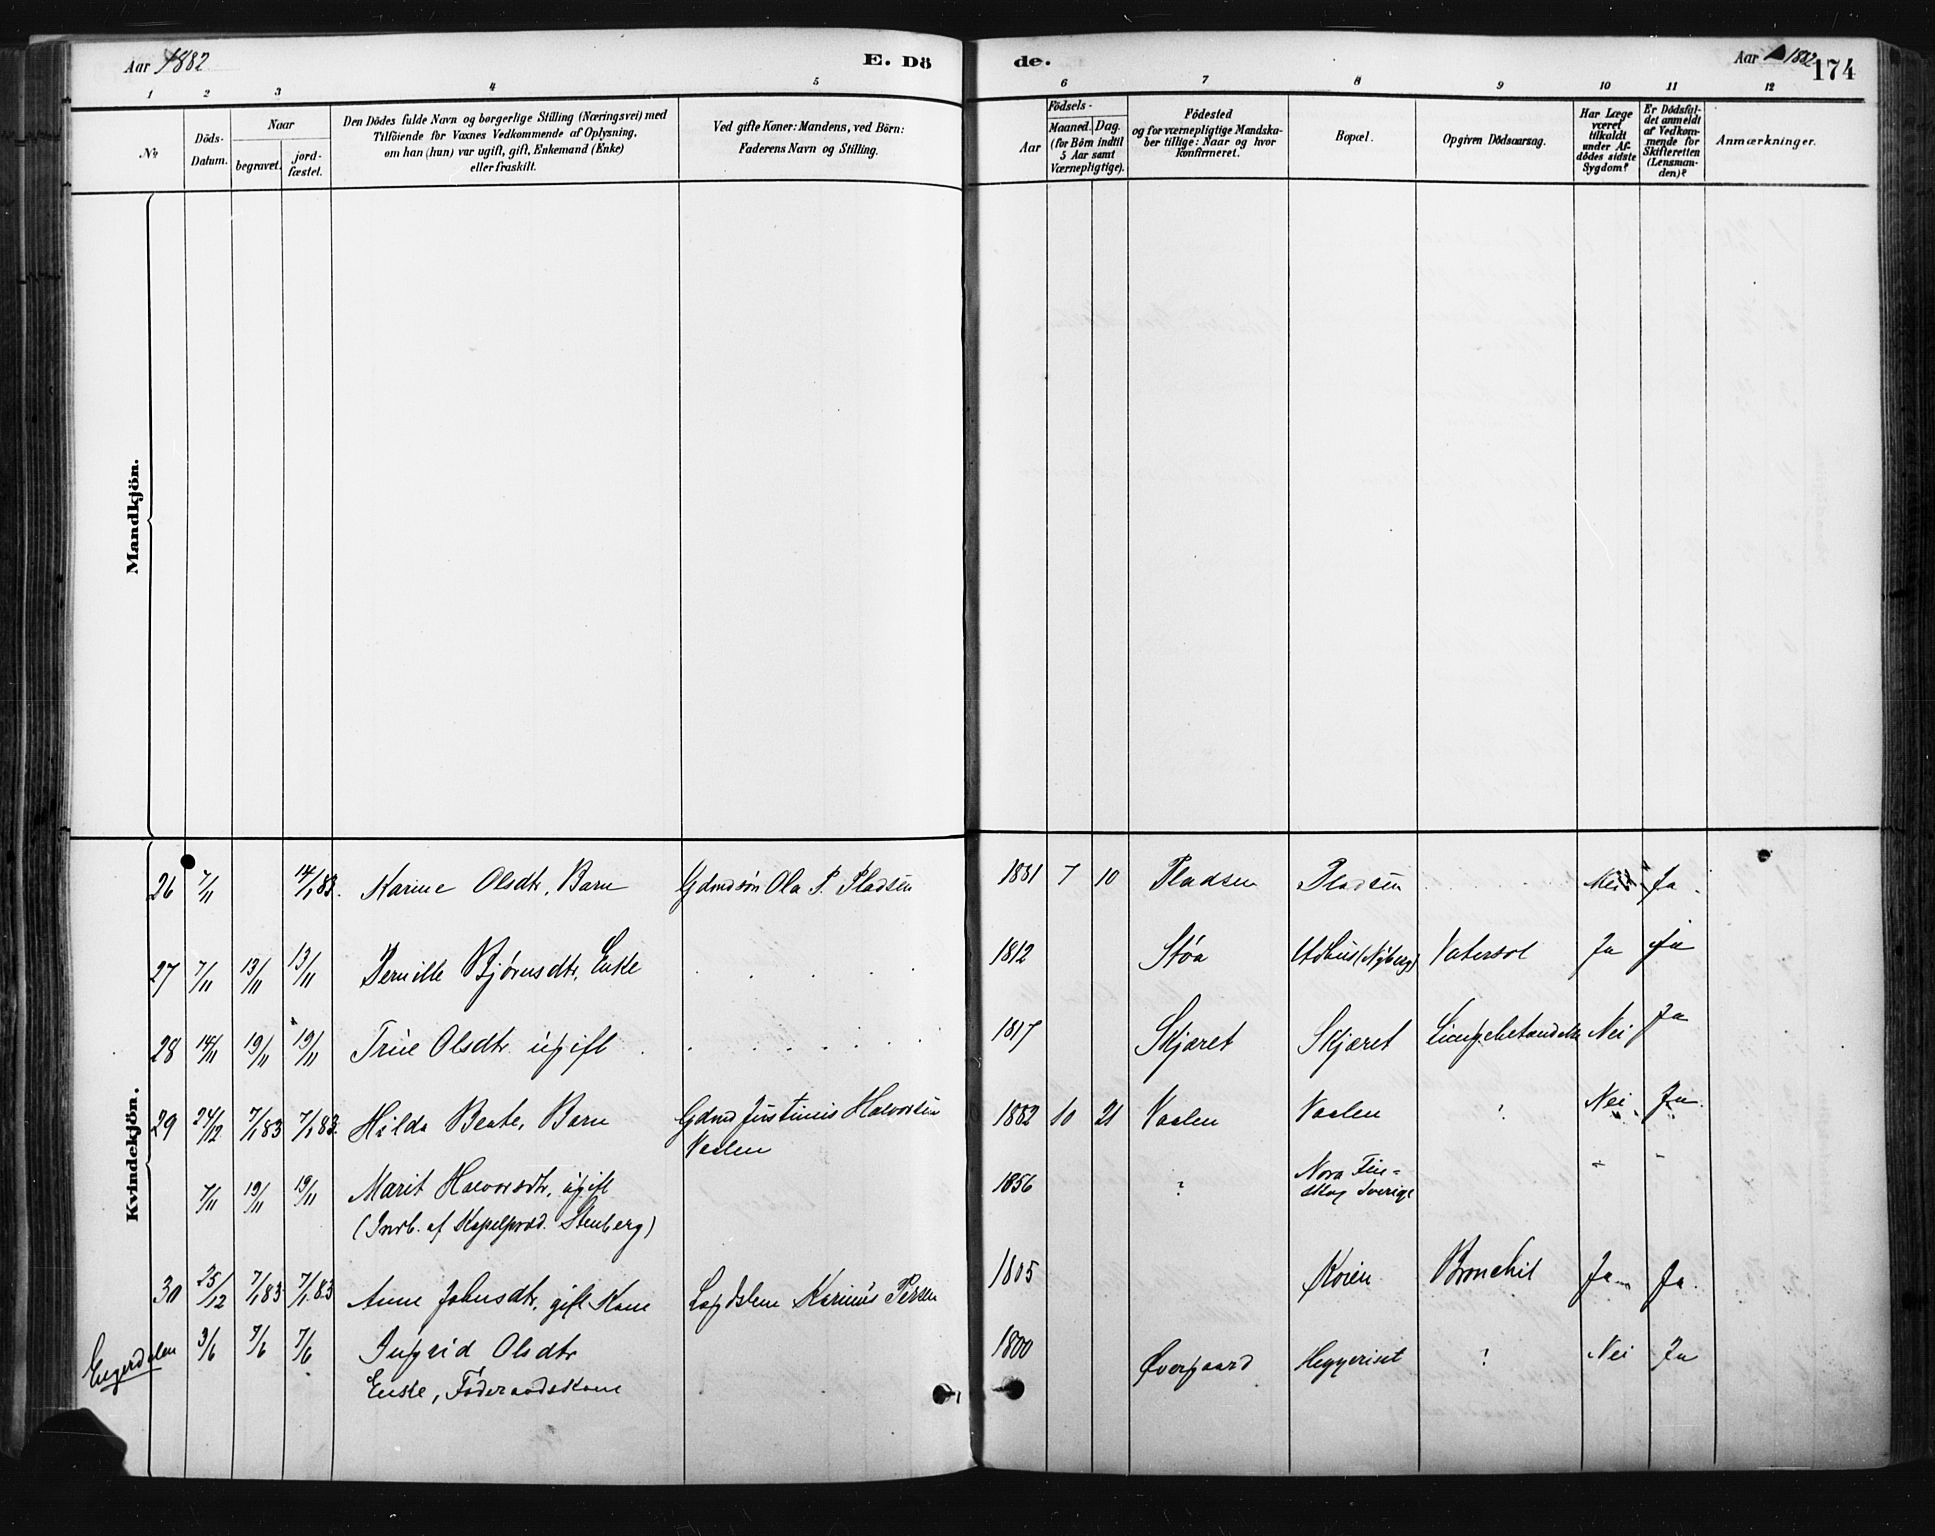 Aar 1882
E. Dö
de.
Aar 1882
174
1 2 3 4 5 6 7 8 9 10 11 12
No
Döds-
Datum.
Naar
begravet.
jord-
fæstet.
Den Dödes fulde Navn og borgerlige Stilling (Næringsvei) med
Tilföiende for Voxnes Vedkommende af Oplysning,
om han (hun) var ugift, gift, Enkemand (Enke)
eller fraskilt.
Ved gifte Koner: Mandens, ved Börn:
Faderens Navn og Stilling.
Födsels-
Aar
Maaned.
Dag.
(for Börn indtil
5 Aar samt
Værnepligtige).
Födested
og for værnepligtige Mandska-
ber tillige: Naar og hvor
Konfirmeret.
Bopæl.
Opgiven Dödsaarsag.
Har Læge
været
tilkaldt
under Af-
dödes sidste
Sygdom?
Er Dödsfal-
det anmeldt
af Vedkom-
mende for
Skifteretten
(Lensman-
den)?
Anmærkninger.
Mandkjön.
Kvindekjön.
26 7/11 14/1 83. Karine Olsdtr, Barn Gdmdsøn Ola P. Pladsen 1881 7 10 Pladsen Pladsen Nei Ja
27 7/11 13/11 13/11 Pernille Bjørnsdtr, Enke 1812 Støa Udhus (Nyberg) Vatersot Ja Ja
28 14/11 19/11 19/11 Trine Olsdtr ugift 1817 Skjæret Skjæret Lungebetændelse Nei Ja
29 24/12 7/1 83 7/1 83. Hilda Beate, Barn Gdmd Justinus Halvorsen 1882 10 21 Vaslen Vaslen ? Nei Ja.
Vaslen
7/11 19/11 19/11 Marit Halvorsdtr, ugift 1856 ? Nora Fin-
skog Sverige
(Indb. af Kapelpræd. Stenberg)
30 25/12 7/1 83 7/1 83 Anne Johnsdtr, gift Kone Lægdslem Karinus Persen 1805 Koien Bronchit Ja Ja.
Engerdalen 3/6 7/6 7/6 Ingrid Olsdtr 1800 Øvergaard Heggeriset ? Nei Ja
Enke, Føderaadskone